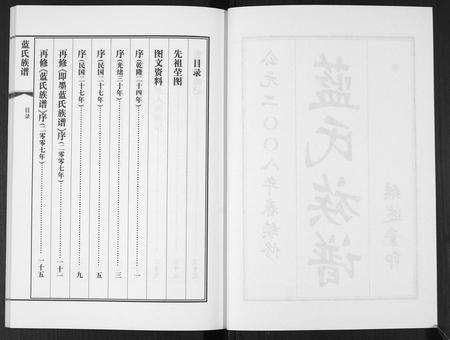 蓝氏族谱
公元二〇〇八年春续修
目录
先祖茔图
图文资料
序（乾隆二十四年）……一
序（光绪三十年）……三
序（民国二十七年）……五
序（民国二十七年）……九
再修《即墨蓝氏族谱》序（二零零七年）……十一
再修《蓝氏族谱》序（二零零七年）……十五
蓝氏族谱
目录